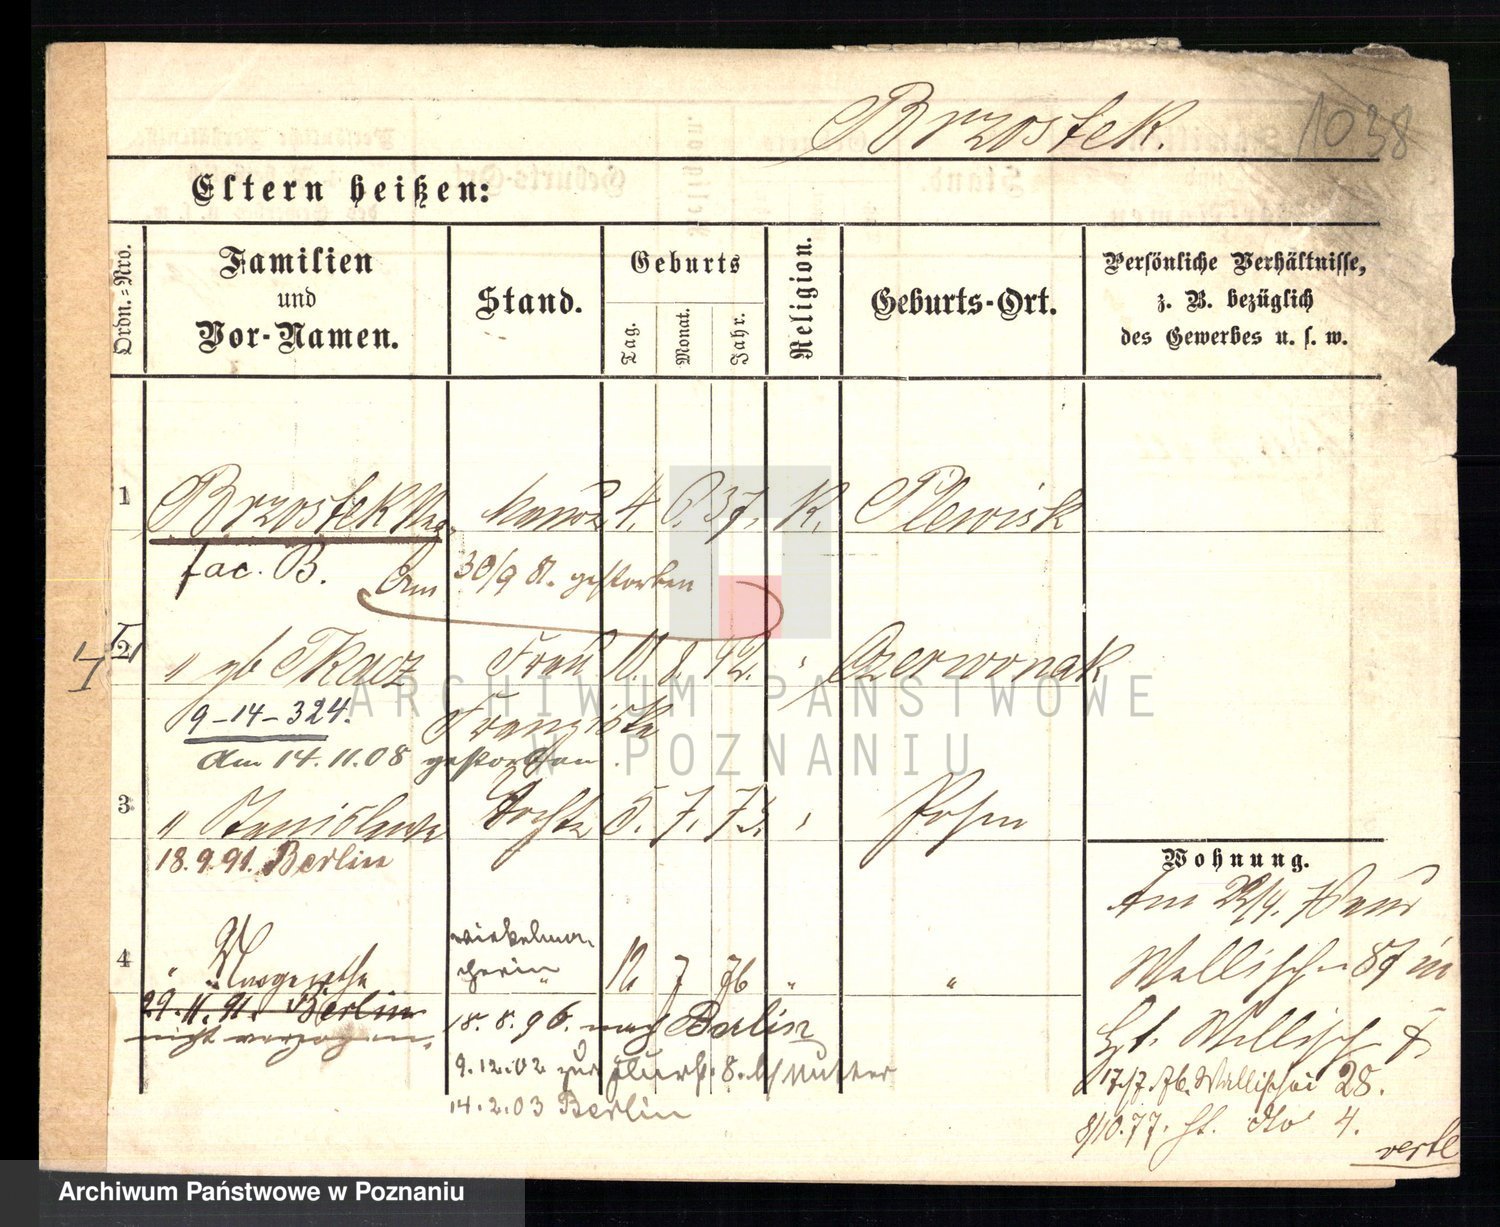 Brzostek. 1038
Eltern heißen:
Ordn.=Nro.
Familien
und
Vor-Namen.
Stand.
Geburts
Tag.
Monat.
Jahr.
Religion.
Geburts-Ort.
Persönliche Verhältnisse,
z. B. bezüglich
des Gewerbes u. s. w.
1 Brzostek 4. 6. 37. K. Plewisk
fac. B. Am 30/9 81. gestorben
2 " gb Tkacz Frau 10. 8. 42. " Czerwonak
9-14-324. Franziska
Am 14.11.08 gestorben.
3 " Stanislawa Tochter 5. 7. 73. " Posen
18.9.91. Berlin
4 " Margarethe 12 7 76 " "
29.11.91. Berlin
nicht verzogen.
18.8.96. nach Berlin
9.12.02 zur 8. b/ Mutter
14.2.03 Berlin
Wohnung.
Am 22/4.
Wallischei 87 in
17./7. 76. Wallischei 28.
8/10.77. do 4.
vertl
ARCHIWUM PAŃSTWOWE
W POZNANIU
Archiwum Państwowe w Poznaniu